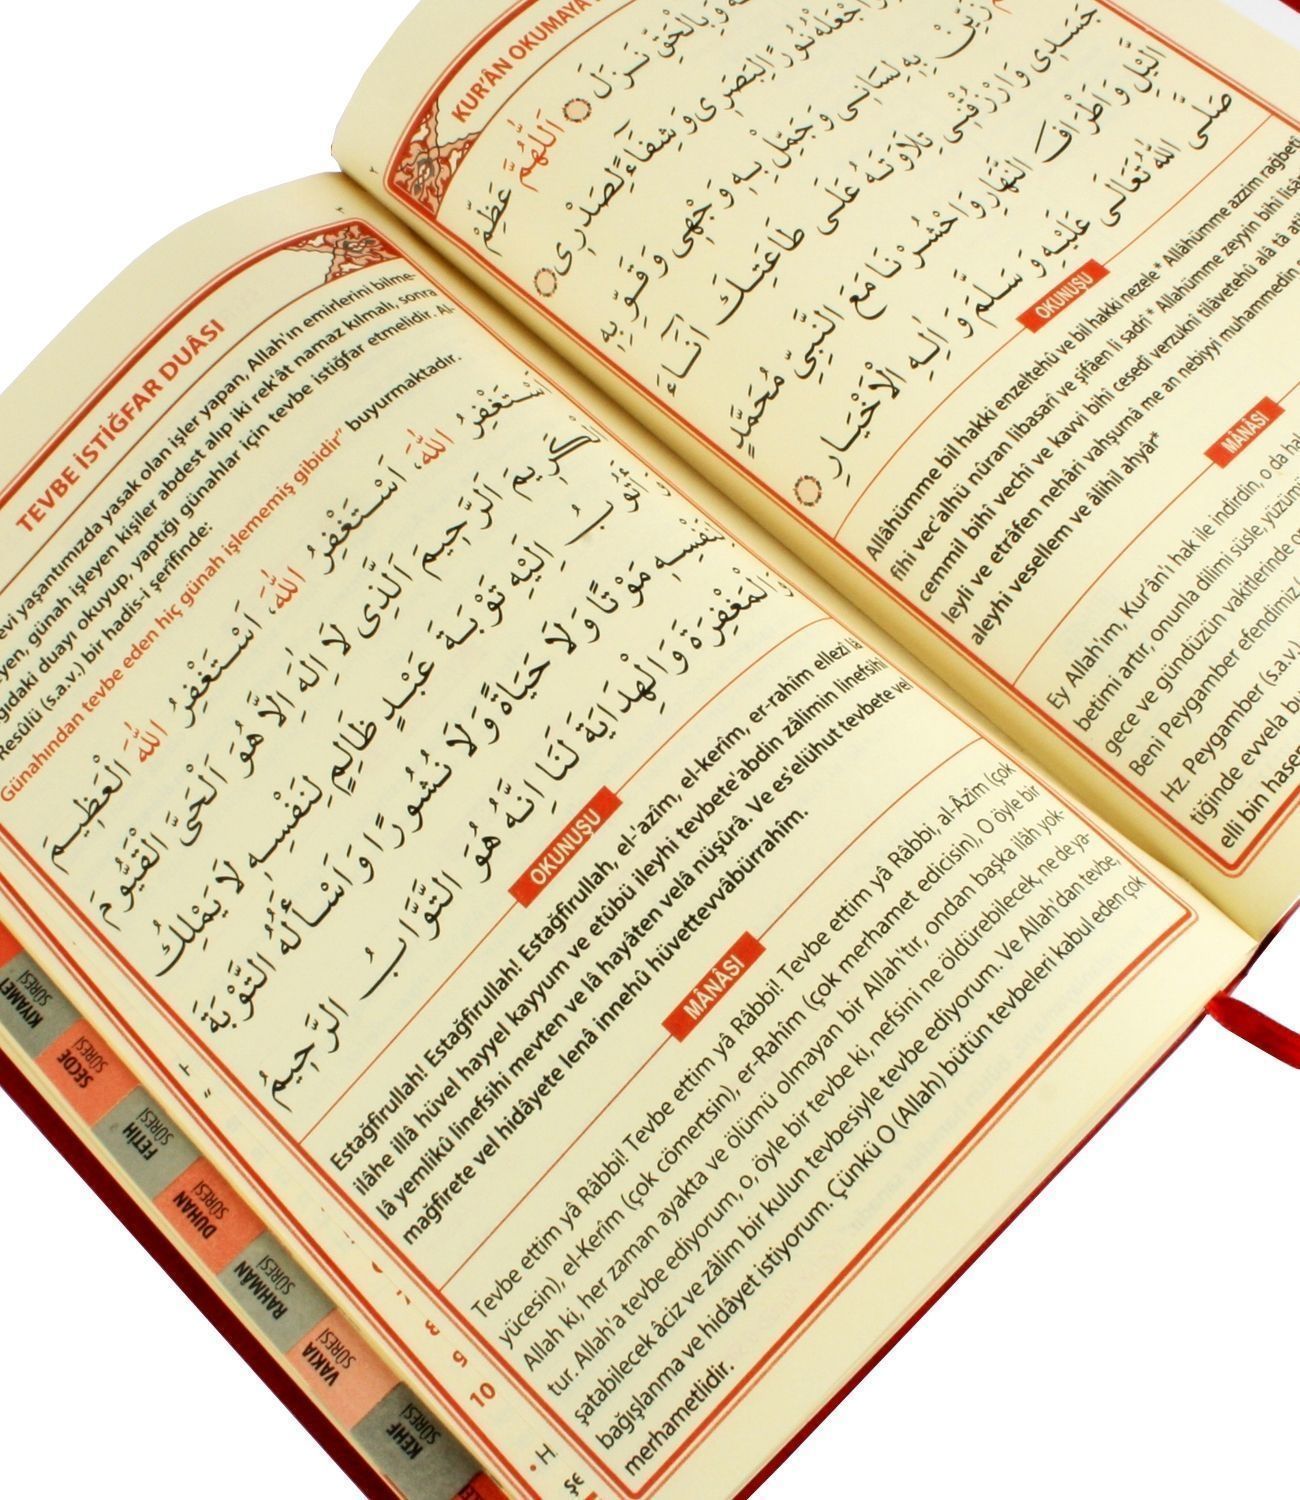 TEVBE İSTİĞFAR DUÂSI
evi yaşantımızda yasak olan işler yapan, Allah'ın emirlerini bilme-
yen, günah işleyen kişiler abdest alıp iki rek'ât namaz kılmalı, sonra
ğıdaki duayı okuyup, yaptığı günahlar için tevbe istiğfar etmelidir. Al-
Resûlü (s.a.v.) bir hadis-i şerifinde:
Günahından tevbe eden hiç günah işlememiş gibidir" buyurmaktadır.
اَسْتَغْفِرُ اللّٰهَ، اَسْتَغْفِرُ اللّٰهَ، اَسْتَغْفِرُ اللّٰهَ الْعَظِيمَ
الْكَرِيمَ اَلرَّحِيمَ اَلَّذِى لَا اِلٰهَ اِلَّا هُوَ اَلْحَىَّ الْقَيُّومَ
وَاَتُوبُ اِلَيْهِ تَوْبَةَ عَبْدٍ ظَالِمٍ لِنَفْسِهِ لَا يَمْلِكُ
لِنَفْسِهِ مَوْتًا وَلَا حَيَاةً وَلَا نُشُورًا وَاَسْاَلُهُ التَّوْبَةَ
وَالْمَغْفِرَةَ وَالْهِدَايَةَ لَنَا اِنَّهُ هُوَ التَّوَّابُ الرَّحِيمُ
OKUNUŞU
Estağfirullah! Estağfirullah! Estağfirullah, el-'azîm, el-kerîm, er-rahîm ellezî lâ
ilâhe illâ hüvel hayyel kayyum ve etûbü ileyhi tevbete'abdin zâlimin linefsihî
lâ yemlikû linefsihi mevten ve lâ hayâten velâ nüşûrâ. Ve es'elühut tevbete vel
mağfirete vel hidâyete lenâ innehû hüvettevvâbürrahîm.
MÂNÂSI
Tevbe ettim yâ Râbbi! Tevbe ettim yâ Râbbi! Tevbe ettim yâ Râbbi, al-Âzîm (çok
yücesin), el-Kerîm (çok cömertsin), er-Rahîm (çok merhamet edicisin), O öyle bir
Allah ki, her zaman ayakta ve ölümü olmayan bir Allah'tır, ondan başka ilâh yok-
tur. Allah'a tevbe ediyorum, o, öyle bir tevbe ki, nefsini ne öldürebilecek, ne de ya-
şatabilecek âciz ve zâlim bir kulun tevbesiyle tevbe ediyorum. Ve Allah'dan tevbe,
bağışlanma ve hidâyet istiyorum. Çünkü O (Allah) bütün tevbeleri kabul eden çok
merhametlidir.
KUR'ÂN OKUMAYA
وَبِالْحَقِّ نَزَلَ اَللّٰهُمَّ عَظِّمْ
وَاجْعَلْهُ نُورًا لِبَصَرِى وَشِفَاءً لِصَدْرِى
زَيِّنْ بِهِ لِسَانِى وَجَمِّلْ بِهِ وَجْهِى وَقَوِّ بِهِ
جَسَدِى وَارْزُقْنِى تِلَاوَتَهُ عَلٰى طَاعَتِكَ اٰنَاءَ
الَّيْلِ وَاَطْرَافَ النَّهَارِ وَاحْشُرْنَا مَعَ النَّبِىِّ مُحَمَّدٍ
صَلَّى اللّٰهُ تَعَالٰى عَلَيْهِ وَسَلَّمَ وَاٰلِهِ الْاَخْيَارِ
OKUNUŞU
Allâhümme bil hakki enzeltehü ve bil hakki nezele * Allâhümme azzim rağbetî
fihi vec'alhü nûran libasarî ve şifâen li sadrî * Allahümme zeyyin bihî lisân
cemmil bihî vechî ve kavvi bihî cesedî verzuknî tilâvetehû alâ tâ ati
leyli ve etrâfen nehâri vahşurnâ me an nebiyyi muhammedin
aleyhi vesellem ve âlihil ahyâr*
MÂNÂSI
Ey Allah'ım, Kur'ân'ı hak ile indirdin, o da hak
betimi artır, onunla dilimi süsle, yüzümü
gece ve gündüzün vakitlerinde
Beni Peygamber efendimiz
Hz. Peygamber (s.a.v.)
tiğinde evvela
elli bin hasen
KIYAMET SÛRESİ
SECDE SÛRESİ
FETİH SÛRESİ
DUHAN SÛRESİ
RAHMÂN SÛRESİ
VAKIA SÛRESİ
KEHF SÛRESİ
3
9
10
• H